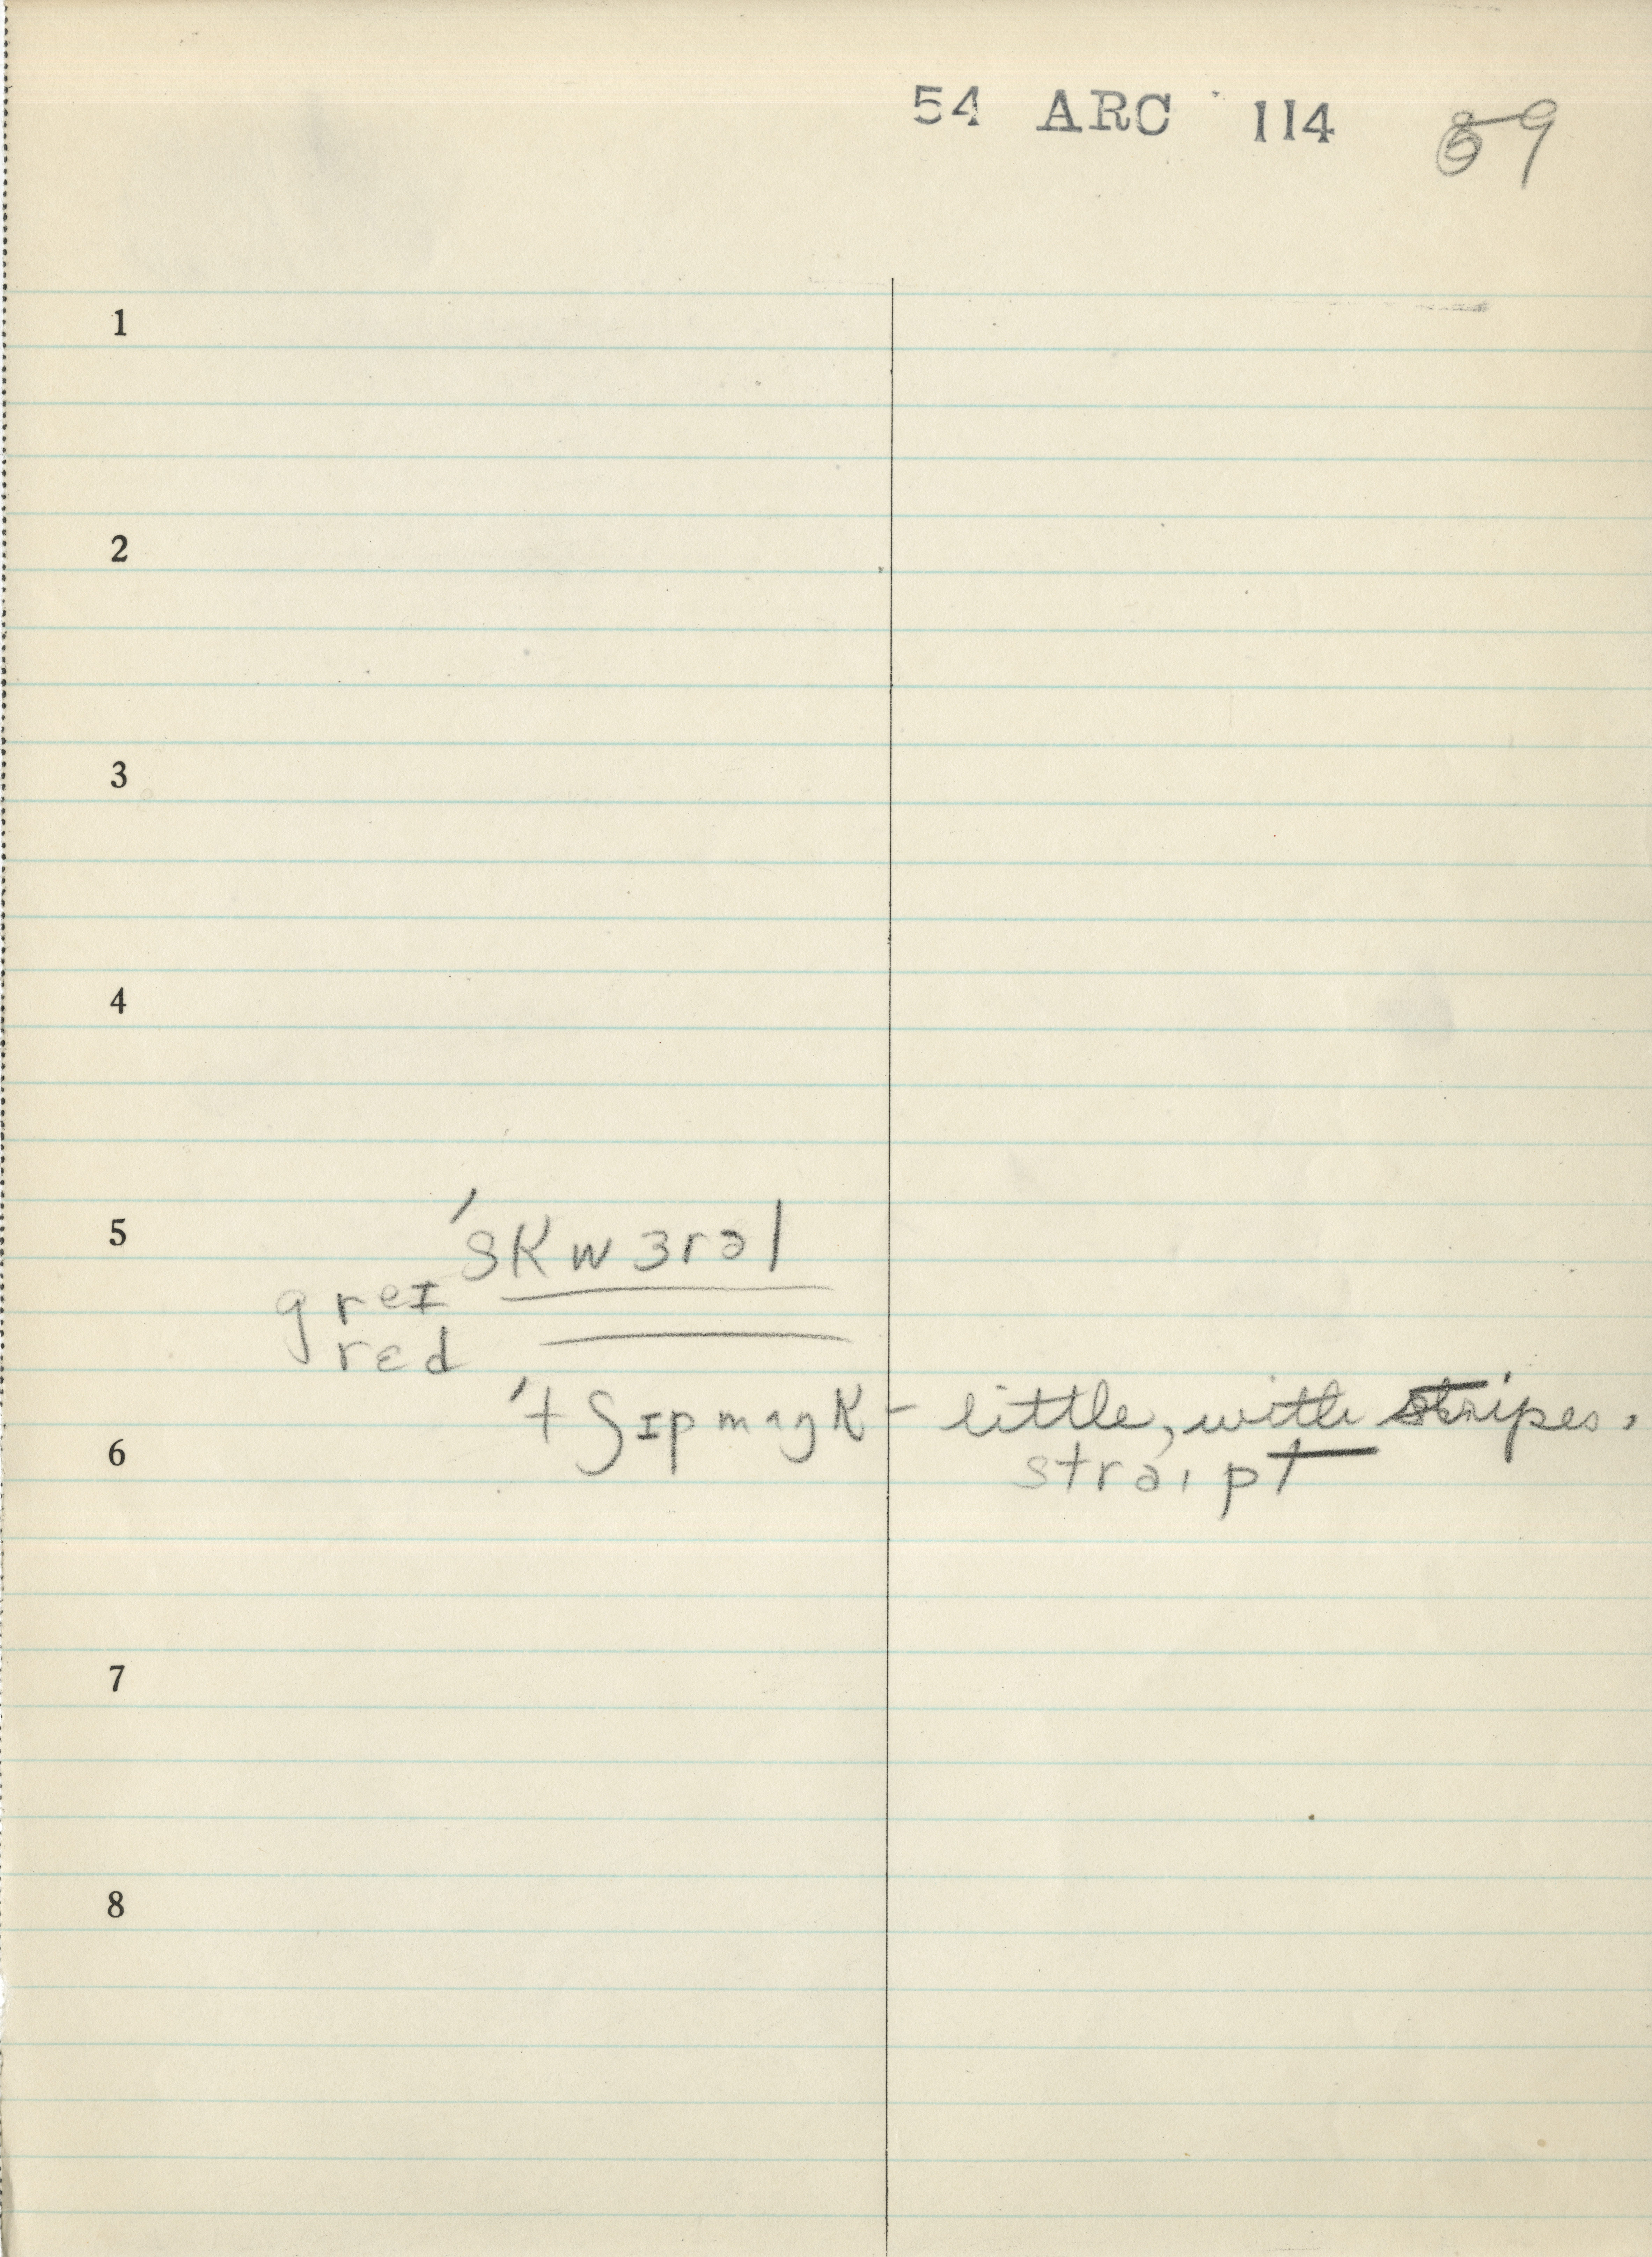 54 ARC 114 59
1
2
3
4
5 ˈskwɜrəl
greɪ
red
ˈtʃɪpmʌŋk - little, with stripes.
6 straɪpt
7
8